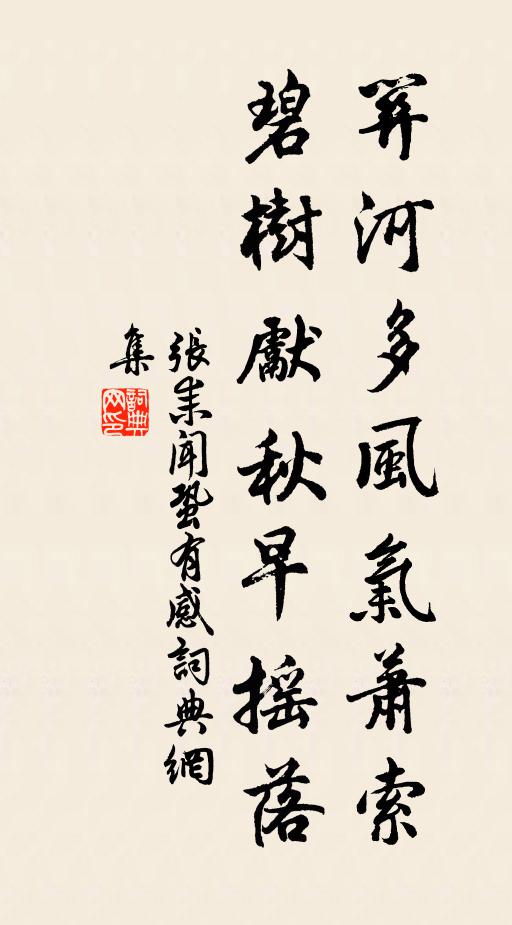 關河多風氣蕭索
碧樹獻秋早搖落
張耒聞蛩有感詞典網
集
詞典
网印